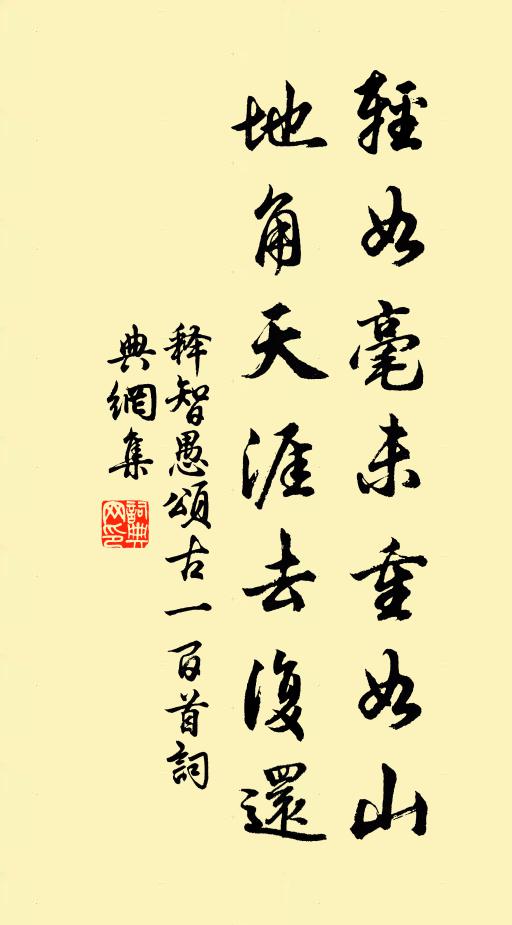 輕如毫未重如山
地角天涯去復還
释智愚頌古一百首詞
典網集
詞典
网印